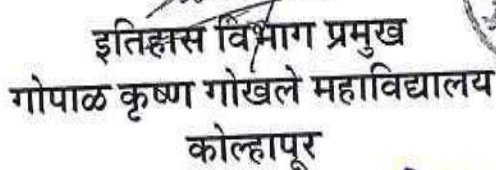 इतिहास विभाग प्रमुख
गोपाळ कृष्ण गोखले महाविद्यालय
कोल्हापूर